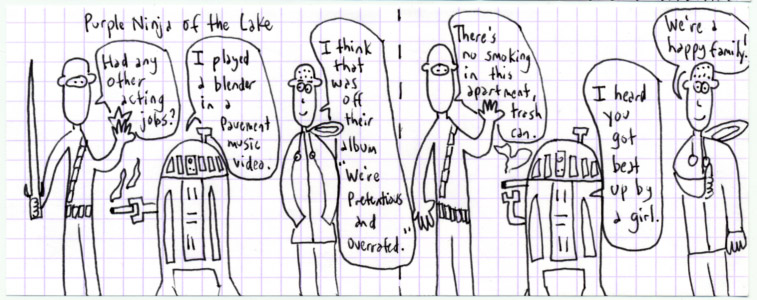 Purple Ninja of the Lake
Had any
other
acting
jobs?
I played
a blender
in a
Pavement
music
video.
I think
that
was
off
their
album
"We're
Pretentious
and
Overrated."
There's
no smoking
in this
apartment,
trash
can.
I heard
you
got
beat
up by
a girl.
We're a
happy family!